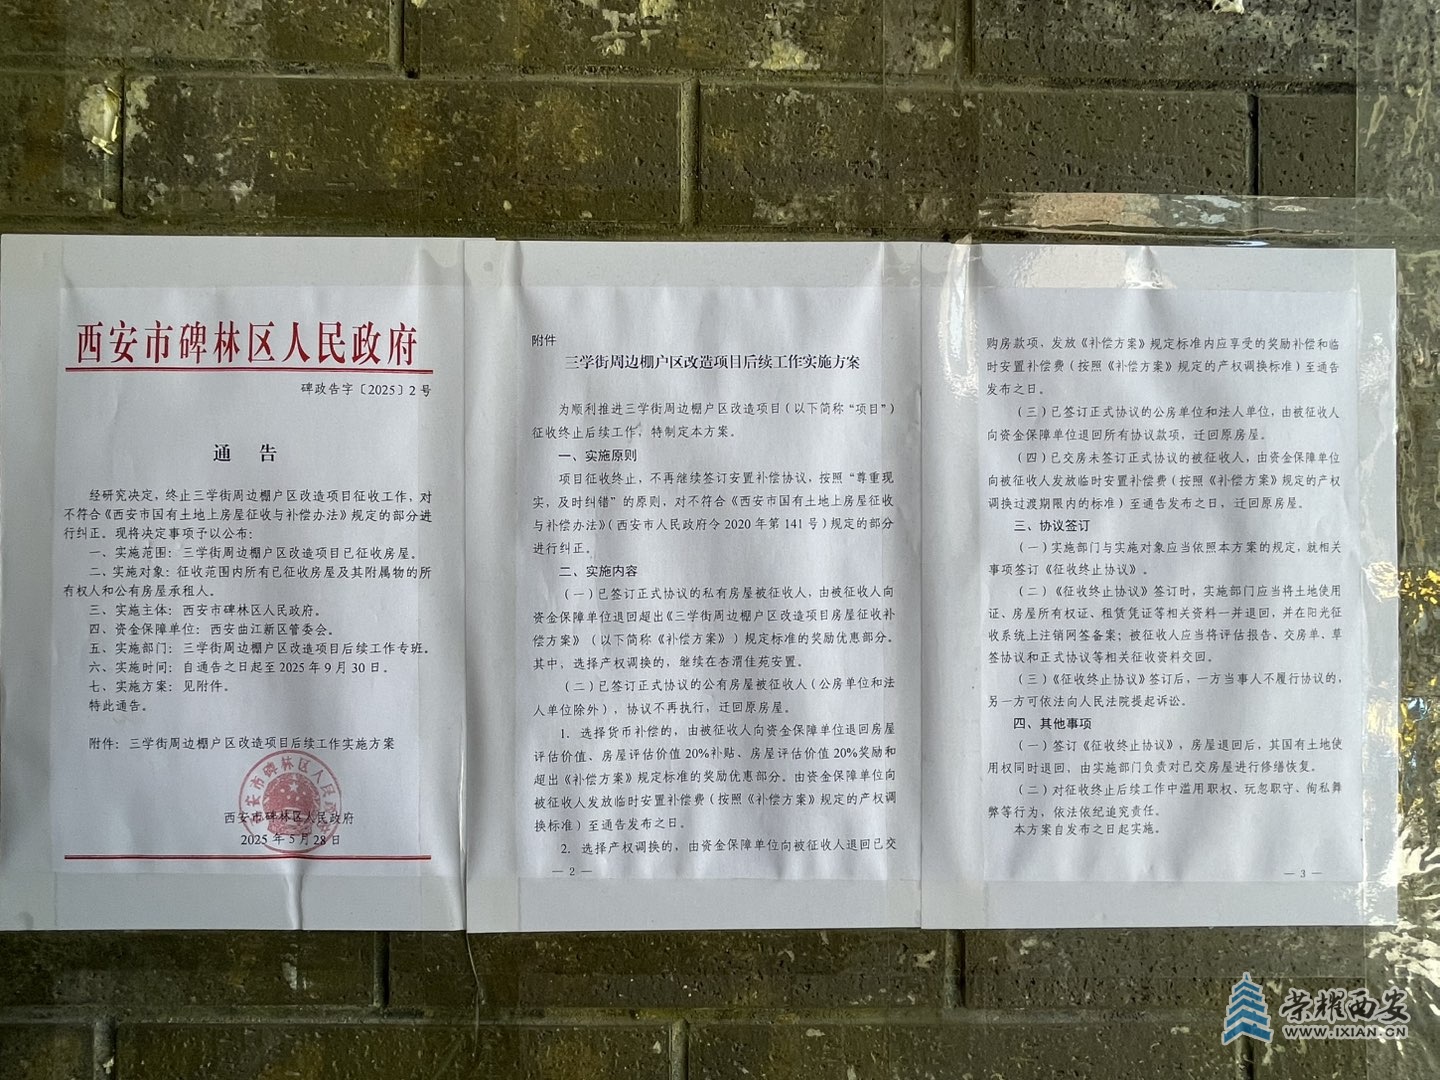 西安市碑林区人民政府
碑政告字〔2025〕2号
通 告
经研究决定，终止三学街周边棚户区改造项目征收工作，对
不符合《西安市国有土地上房屋征收与补偿办法》规定的部分进
行纠正。现将决定事项予以公布：
一、实施范围：三学街周边棚户区改造项目已征收房屋。
二、实施对象：征收范围内所有已征收房屋及其附属物的所
有权人和公有房屋承租人。
三、实施主体：西安市碑林区人民政府。
四、资金保障单位：西安曲江新区管委会。
五、实施部门：三学街周边棚户区改造项目后续工作专班。
六、实施时间：自通告之日起至2025年9月30日。
七、实施方案：见附件。
特此通告。
附件：三学街周边棚户区改造项目后续工作实施方案
西安市碑林区人民政府
2025年5月28日
附件
三学街周边棚户区改造项目后续工作实施方案
为顺利推进三学街周边棚户区改造项目（以下简称“项目”）
征收终止后续工作，特制定本方案。
一、实施原则
项目征收终止，不再继续签订安置补偿协议，按照“尊重现
实，及时纠错”的原则，对不符合《西安市国有土地上房屋征收
与补偿办法》（西安市人民政府令2020年第141号）规定的部分
进行纠正。
二、实施内容
（一）已签订正式协议的私有房屋被征收人，由被征收人向
资金保障单位退回超出《三学街周边棚户区改造项目房屋征收补
偿方案》（以下简称《补偿方案》）规定标准的奖励优惠部分。
其中，选择产权调换的，继续在杏渭佳苑安置。
（二）已签订正式协议的公有房屋被征收人（公房单位和法
人单位除外），协议不再执行，迁回原房屋。
1. 选择货币补偿的，由被征收人向资金保障单位退回房屋
评估价值、房屋评估价值20%补贴、房屋评估价值20%奖励和
超出《补偿方案》规定标准的奖励优惠部分。由资金保障单位向
被征收人发放临时安置补偿费（按照《补偿方案》规定的产权调
换标准）至通告发布之日。
2. 选择产权调换的，由资金保障单位向被征收人退回已交
— 2 —
购房款项，发放《补偿方案》规定标准内应享受的奖励补偿和临
时安置补偿费（按照《补偿方案》规定的产权调换标准）至通告
发布之日。
（三）已签订正式协议的公房单位和法人单位，由被征收人
向资金保障单位退回所有协议款项，迁回原房屋。
（四）已交房未签订正式协议的被征收人，由资金保障单位
向被征收人发放临时安置补偿费（按照《补偿方案》规定的产权
调换过渡期限内的标准）至通告发布之日，迁回原房屋。
三、协议签订
（一）实施部门与实施对象应当依照本方案的规定，就相关
事项签订《征收终止协议》。
（二）《征收终止协议》签订时，实施部门应当将土地使用
证、房屋所有权证、租赁凭证等相关资料一并退回，并在阳光征
收系统上注销网签备案；被征收人应当将评估报告、交房单、草
签协议和正式协议等相关征收资料交回。
（三）《征收终止协议》签订后，一方当事人不履行协议的，
另一方可依法向人民法院提起诉讼。
四、其他事项
（一）签订《征收终止协议》，房屋退回后，其国有土地使
用权同时退回，由实施部门负责对已交房屋进行修缮恢复。
（二）对征收终止后续工作中滥用职权、玩忽职守、徇私舞
弊等行为，依法依纪追究责任。
本方案自发布之日起实施。
— 3 —
荣耀西安
WWW.IXIAN.CN